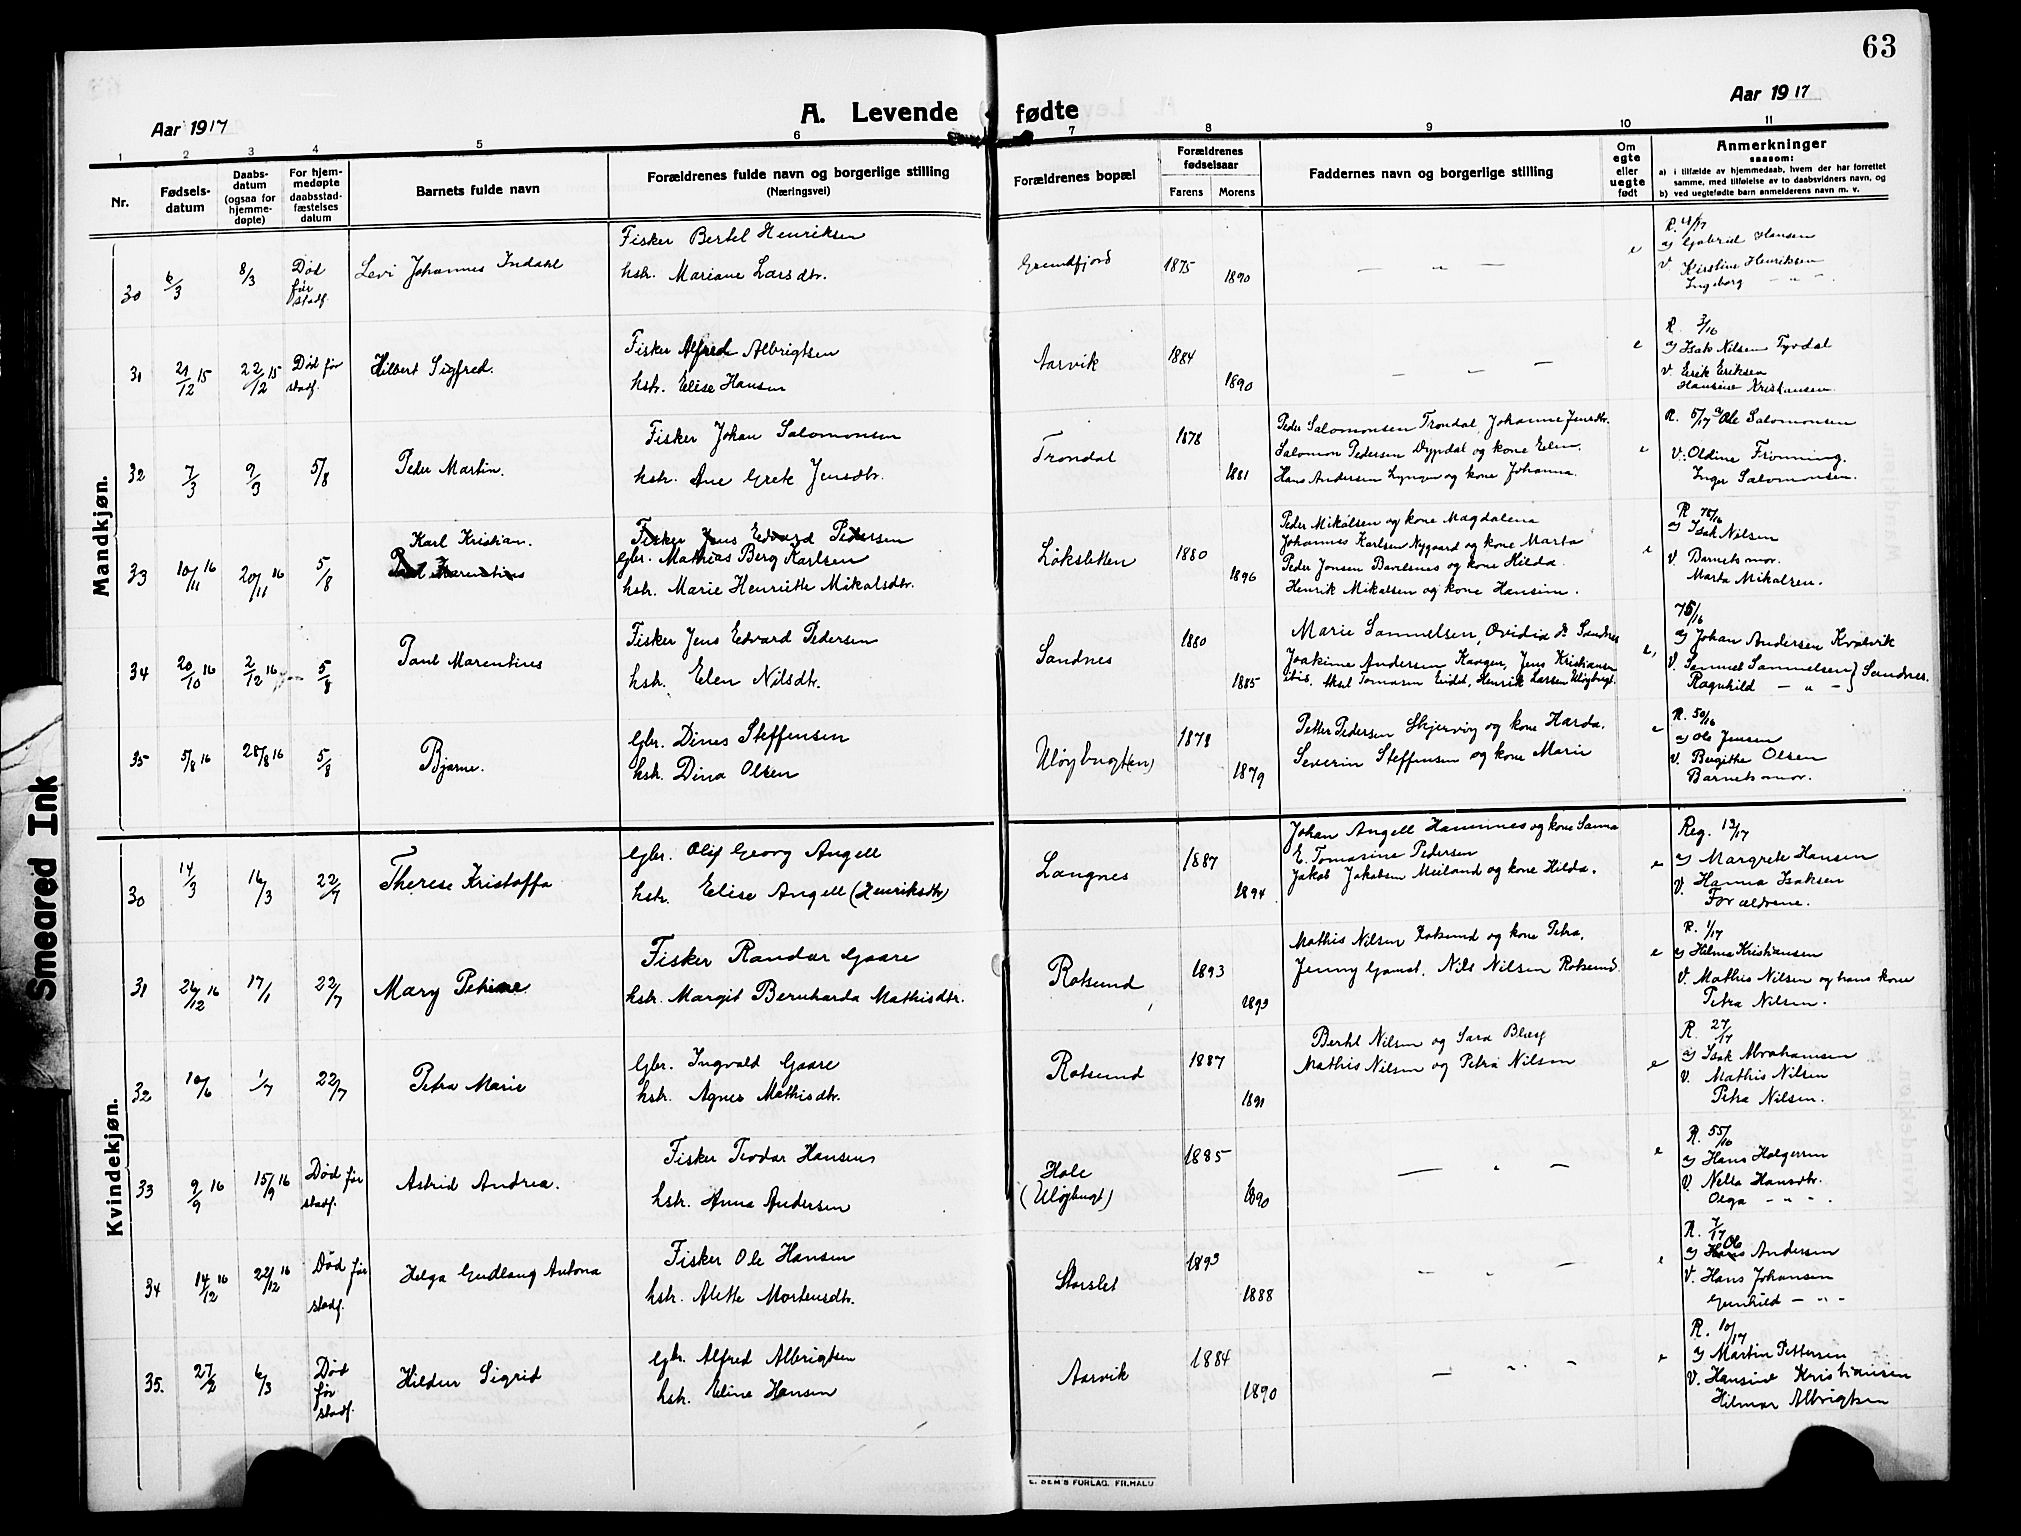 63
Aar 1917
A. Levende fødte
Aar 1917
1 2 3 4 5 6 7 8 9 10 11
Nr.
Fødsels-
datum
Daabs-
datum
(ogsaa for
hjemme-
døpte)
For hjem-
medøpte
daabsstad-
fæstelses
datum
Barnets fulde navn
Forældrenes fulde navn og borgerlige stilling
(Næringsvei)
Forældrenes bopæl
Forældrenes
fødselsaar
Farens Morens
Faddernes navn og borgerlige stilling
Om
egte
eller
uegte
født
Anmerkninger
saasom:
a) i tilfælde av hjemmedaab, hvem der har forrettet
samme, med tilføielse av to daabsvidners navn, og
b) ved uegtefødte barn anmelderens navn m. v.
Mandkjøn.
30 6/3 8/3 Død
før
stadf.
Levi Johannes Indahl
Fisker Bertel Henriksen
hstr. Mariane Larsdtr.
Grundfjord 1875 1890
— „ —
e
a) Gabriel Hansen
V. Kirstine Henriksen
Ingeborg — „ —
31 21/12 15 22/12 15 Død før
stadf.
Hilbert Sigfred.
Fisker Alfred Albrigtsen
hstr. Elise Hansen
Aarvik 1884 1890
— „ —
e
R. 3/16
a) Isak Nilsen Tyvdal
V. Erik Eriksen
Hansine Kristiansen.
32 7/3 9/3 5/8
Peder Martin.
Fisker Johan Salomonsen
hstr. Ane Grete Jensdtr.
Trondal 1878 1881
Peder Salomonsen Trondal, Johanne Jensdtr.
Salomon Pedersen Dypdal og kone Elen.
Hans Andersen Lyngen og kone Johanna.
e
R. 6/17 a) Ole Salomonsen
V. Oldine Fronning.
Inger Salomonsen.
33 10/11 16 20/11 16 5/8
Karl Kristian.
Paul Marentius
Fisker Jens Edvard Pedersen
gbr. Mathias Berg Karlsen
hstr. Marie Henriette Mikalsdtr.
Løksletten 1880 1896
Peder Mikalsen og kone Magdalena
Johannes Karlsen Nygaard og kone Marta
Peder Jonsen Bavelsnes og kone Hilda.
Henrik Mikalsen og kone Hansine.
e
R. 78/16
a) Isak Nilsen
V. Barnets mor.
Marta Mikalsen.
34 20/10 16 2/12 16 5/8
Paul Marentines
Fisker Jens Edvard Pedersen
hstr. Elen Nilsdtr.
Sandnes 1880 1885
Marie Sammelsen, Ovidia do Sandnes
Joakime Andersen Kaagen, Jens Kristiansen
ibid. Aksel Tomasen Eidet, Henrik Larsen Uløybugt.
e,
75/16
a) Johan Andersen Kvalvik
V. Samuel Sammelsen } Sandnes.
Ragnhild — „ — }
35 5/8 16 28/8 16 5/8
Bjarne.
Gbr. Dines Steffensen
hstr. Dina Olsen
Uløybugt(en) 1878 1879
Petter Pedersen Skjervøy og kone Harda.
Severin Steffensen og kone Marie
e
R. 50/16
a) Ole Jensen
V. Bergithe Olsen
Barnets mor.
Kvindekjøn.
30 14/3 16/3 22/7
Therese Kristoffa
Gbr. Oluf Georg Angell
hstr. Elise Angell (Henriksdtr)
Langnes 1887 1894
Johan Angell Hamnnes og kone Sanna
E. Tomasine Pedersen
Jakob Jakobsen Meiland og kone Hilda.
e
Reg. 13/17
a) Margrete Hansen
V. Hanna Isaksen
Forældrene.
31 26/12 16 17/1 22/7
Mary Petrine
Fisker Randar Gaare
hstr. Margit Bernharda Mathisdtr.
Rotsund 1893 1893
Mathis Nilsen Rotsund og kone Petra.
Jenny Gamst. Nils Nilsen Rotsund.
e
R. 1/17
a) Hilma Kristiansen
V. Mathis Nilsen og hans kone
Petra Nilsen.
32 10/6 1/7 22/7
Petra Marie
Gbr. Ingvald Gaare
hstr. Agnes Mathisdtr.
Rotsund 1887 1891
Bertel Nilsen og Sara Blæsg
Mathis Nilsen og Petra Nilsen
e
R. 27/17
a) Isak Abrahamsen
V. Mathis Nilsen
Petra Nilsen.
33 9/9 16 15/9 16 Død før
stadf.
Astrid Andrea.
Fisker Teodor Hansen
hstr. Anna Andersen
Hole
(Uløybugt) 1885 1890
— „ —
e
R. 55/16
a) Hans Holgersen
V. Nella Hansdtr.
Olga — „ —
34 14/12 16 22/12 16 Død før
stadf.
Helga Gudlaug Antona
Fisker Ole Hansen
hstr. Alette Mortensdtr.
Storslet 1893 1888
— „ —
e
R. 7/17
a) Hans Ole Andersen
V. Hans Johansen
Gunhild — „ —
35. 27/2 6/3 Død
før
stadf.
Hildur Sigrid
Gbr. Alfred Albrigtsen
hstr. Eline Hansen
Aarvik 1884 1890
— „ —
e
R. 10/17
a) Martin Pettersen
V. Hansine Kristiansen
Hilmar Albrigtsen
E. SEM'S FORLAG. FR.HALD
Smeared Ink